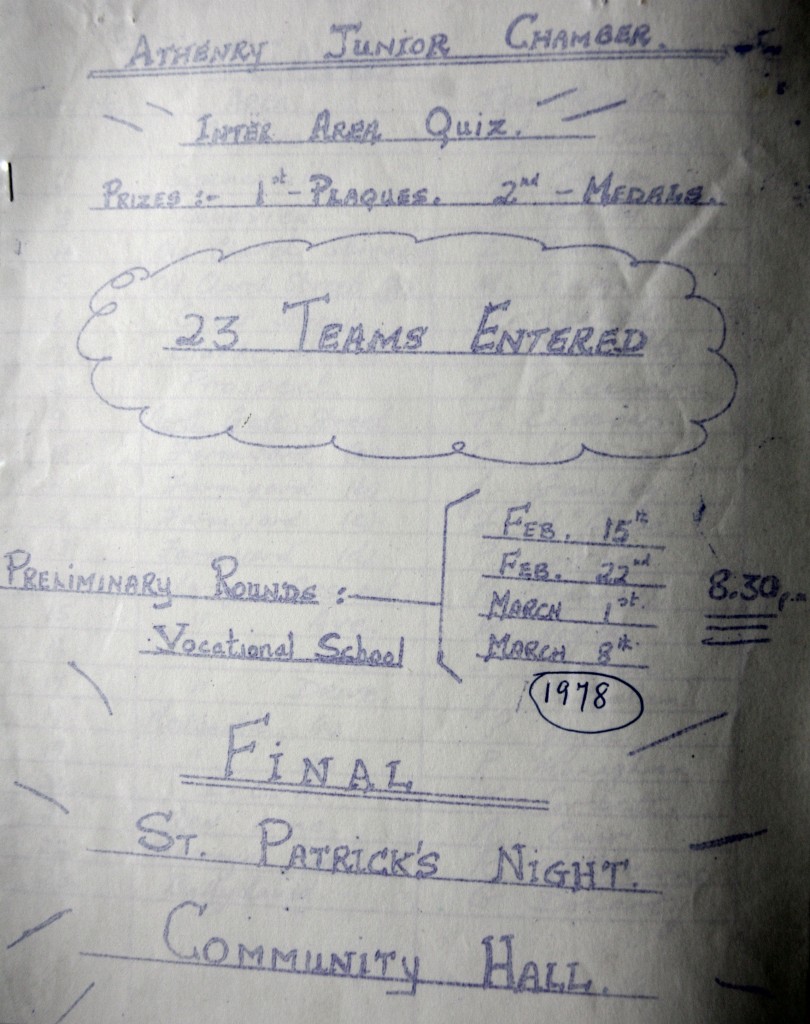 ATHENRY JUNIOR CHAMBER.
INTER AREA QUIZ.
PRIZES :- 1st - PLAQUES. 2nd - MEDALS.
23 TEAMS ENTERED
PRELIMINARY ROUNDS :-
Vocational School
FEB. 15th
FEB. 22nd
MARCH 1st.
MARCH 8th.
8.30p.m
1978
FINAL
ST. PATRICK'S NIGHT.
COMMUNITY HALL.